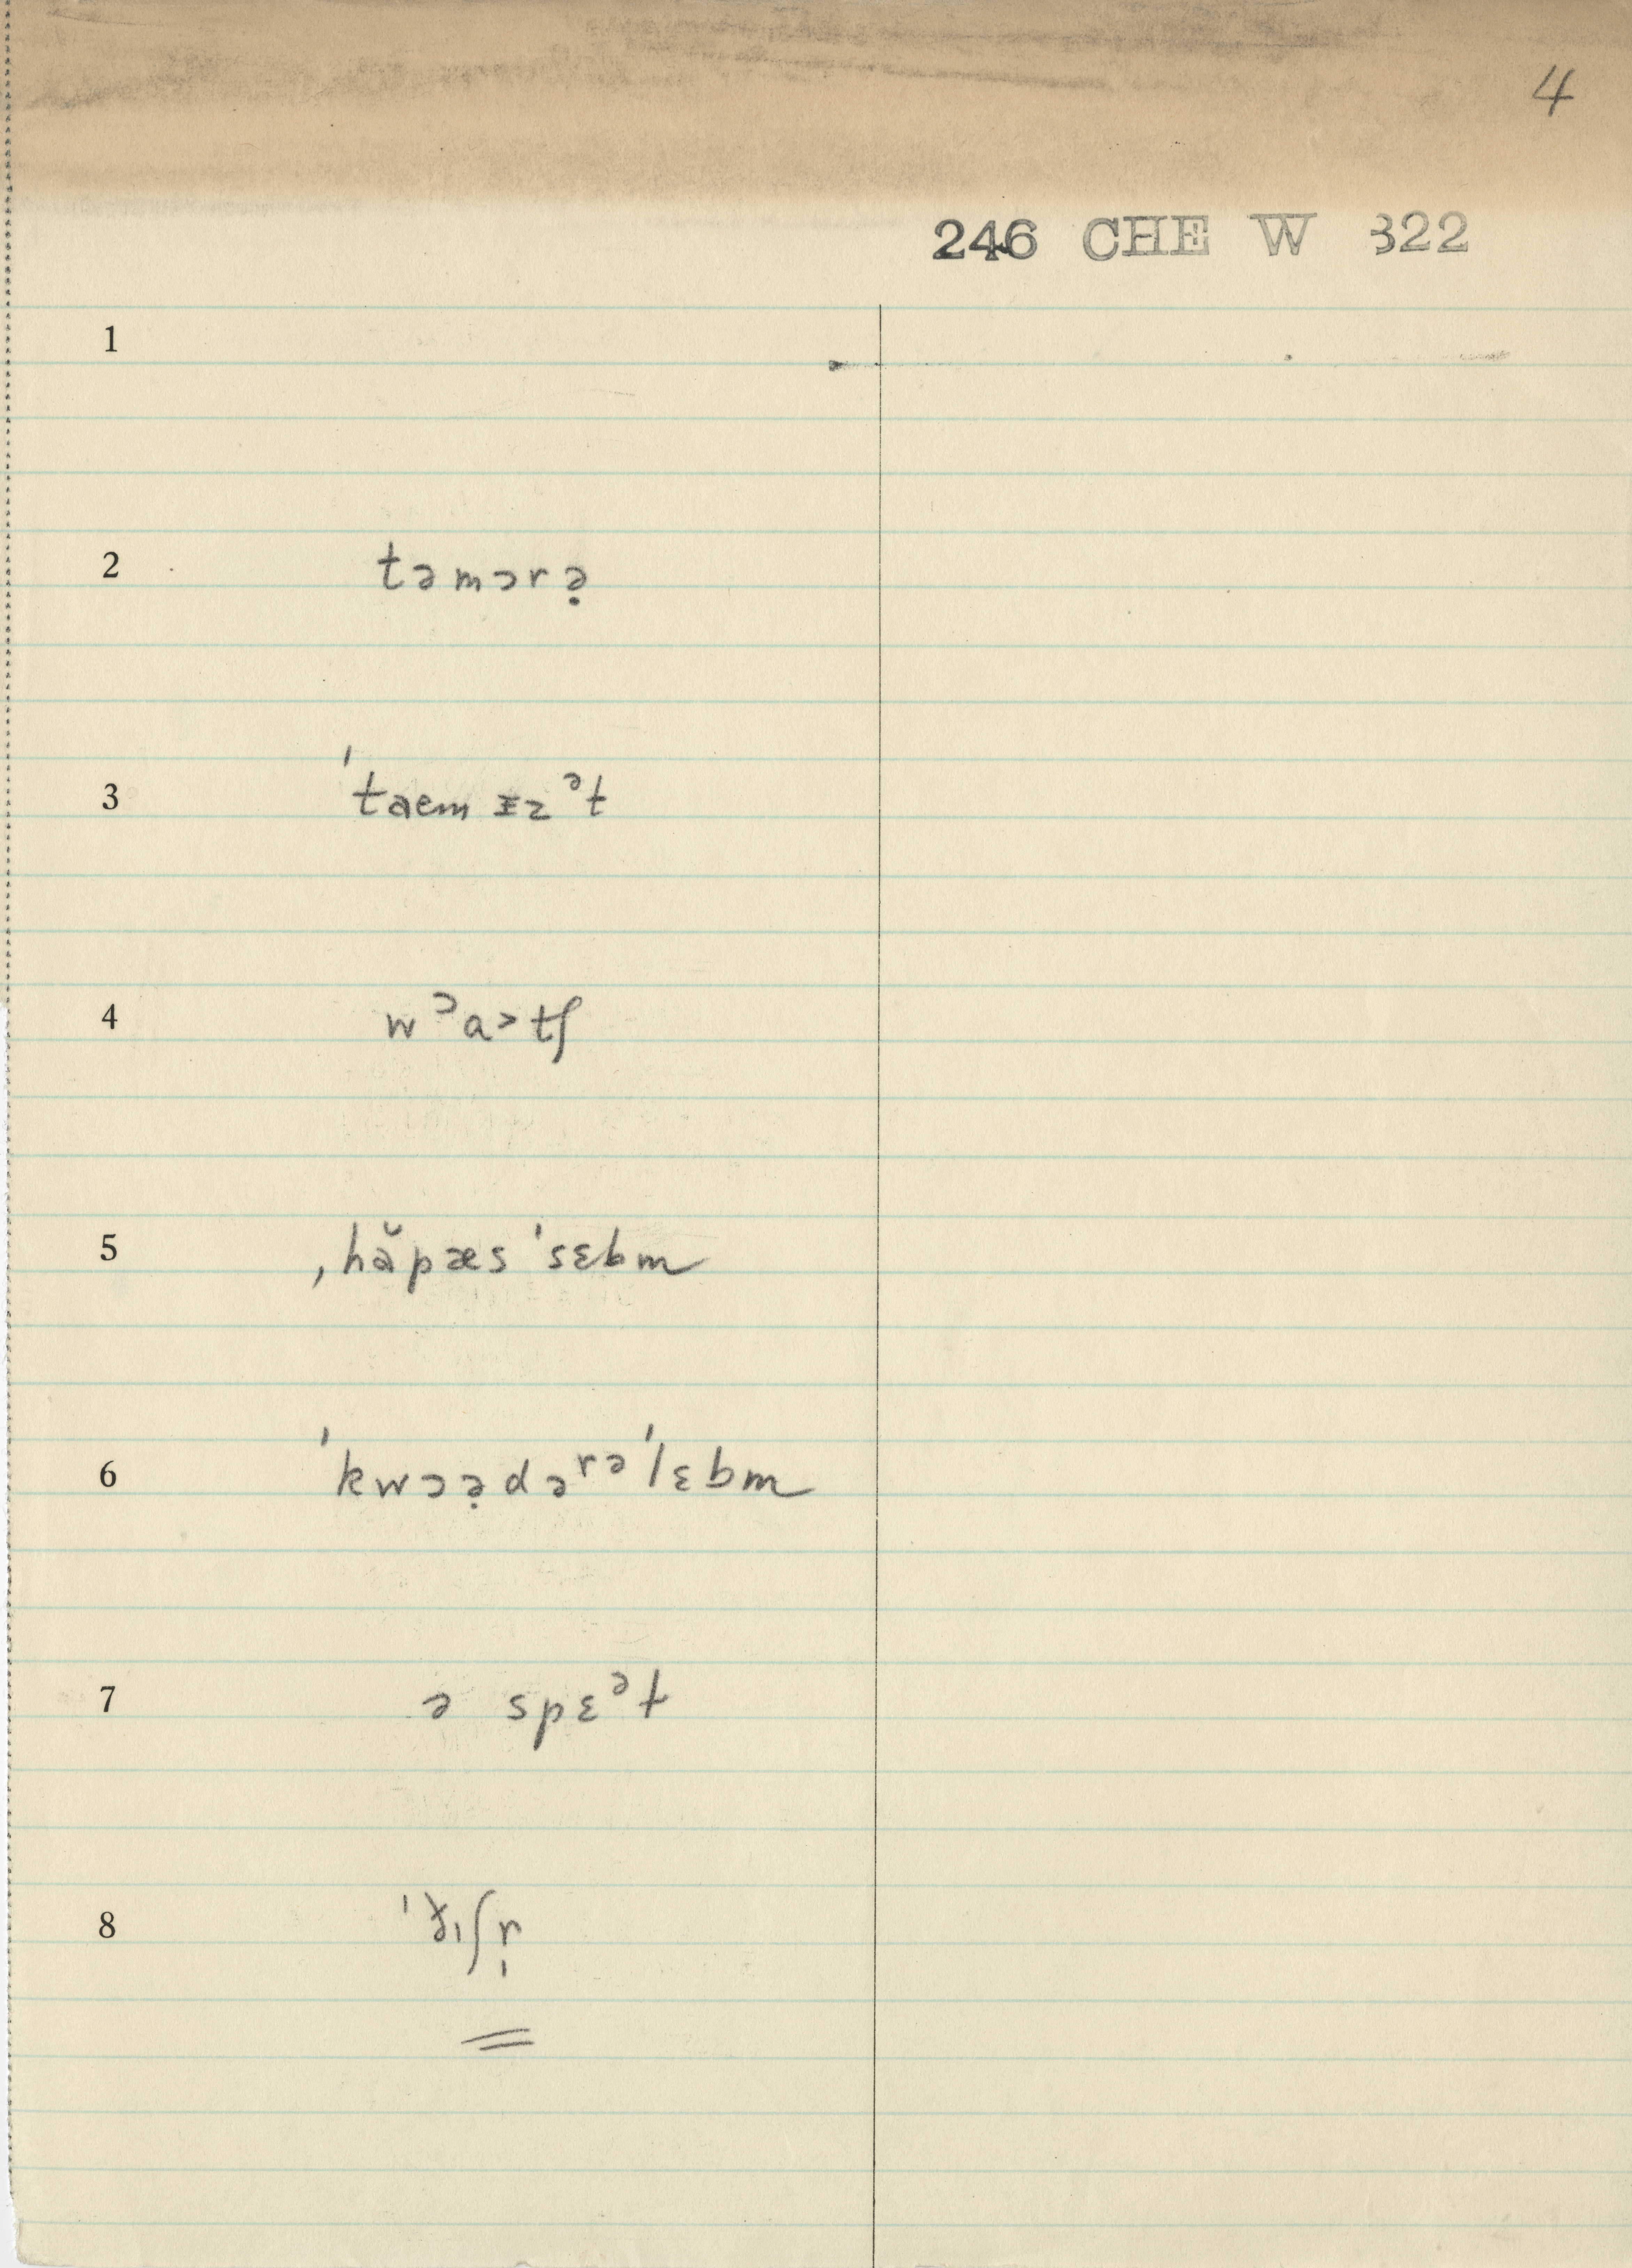 4
246 CHE W 322
1
2 təmɔrə̣
3 ˈtaem ɪz ᵊt
4 w ᵓa˃tʃ
5 ˌhăpæs ˈsɛbm
6 ˈkwɔə̣dəʳᵊˈlɛbm
7 ə spɛᵊt
8